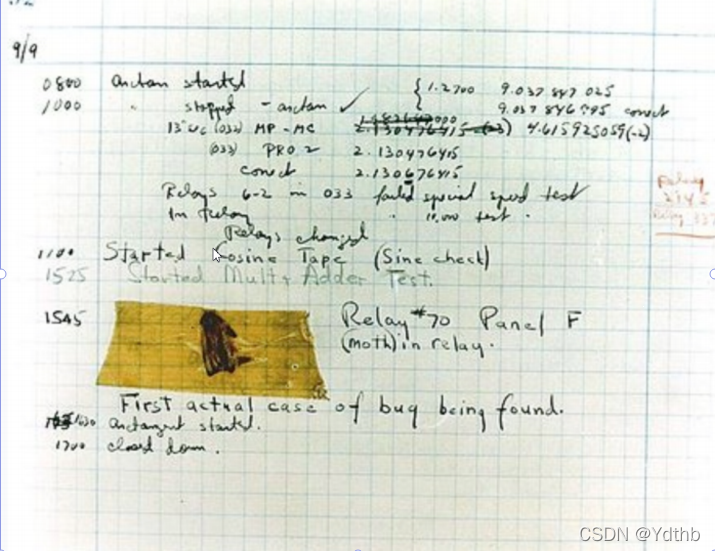 9/9
0800 arctan started { 1.2700 9.037 847 025
1000 " stopped - arctan ✓ { 9.037 846 995 correct
13"uc (032) MP - MC 2.130476415 (-3) 4.615925059(-2)
(033) PRO 2 2.130476415
correct 2.130676415
Relays 6-2 in 033 failed special speed test
In Relay " 11.000 test "
Relays changed
1100 Started Cosine Tape (Sine check)
1525 Started Mult + Adder Test.
1545 Relay #70 Panel F
(moth) in relay.
First actual case of bug being found.
1630 arctangent started.
1700 closed down.
Relay
2145
Relay 337
CSDN @Ydthb